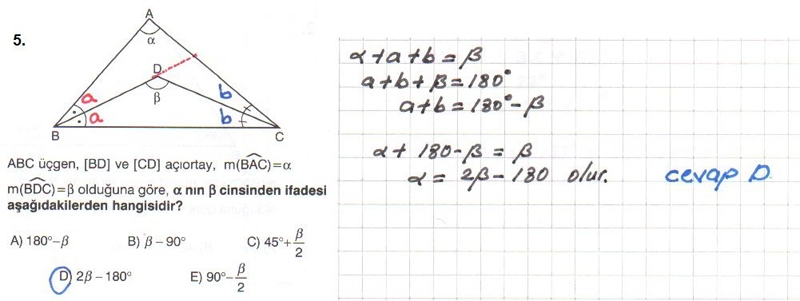 5.
A
α
D
β
a
a
b
b
B
C
ABC üçgen, [BD] ve [CD] açıortay, m(BAC)=α
m(BDC)=β olduğuna göre, α nın β cinsinden ifadesi
aşağıdakilerden hangisidir?
A) 180°–β B) β – 90° C) 45°+β/2
D) 2β – 180° E) 90°–β/2
α+a+b=β
a+b+β=180°
a+b=180°-β
α+ 180-β = β
α = 2β-180 olur. cevap D